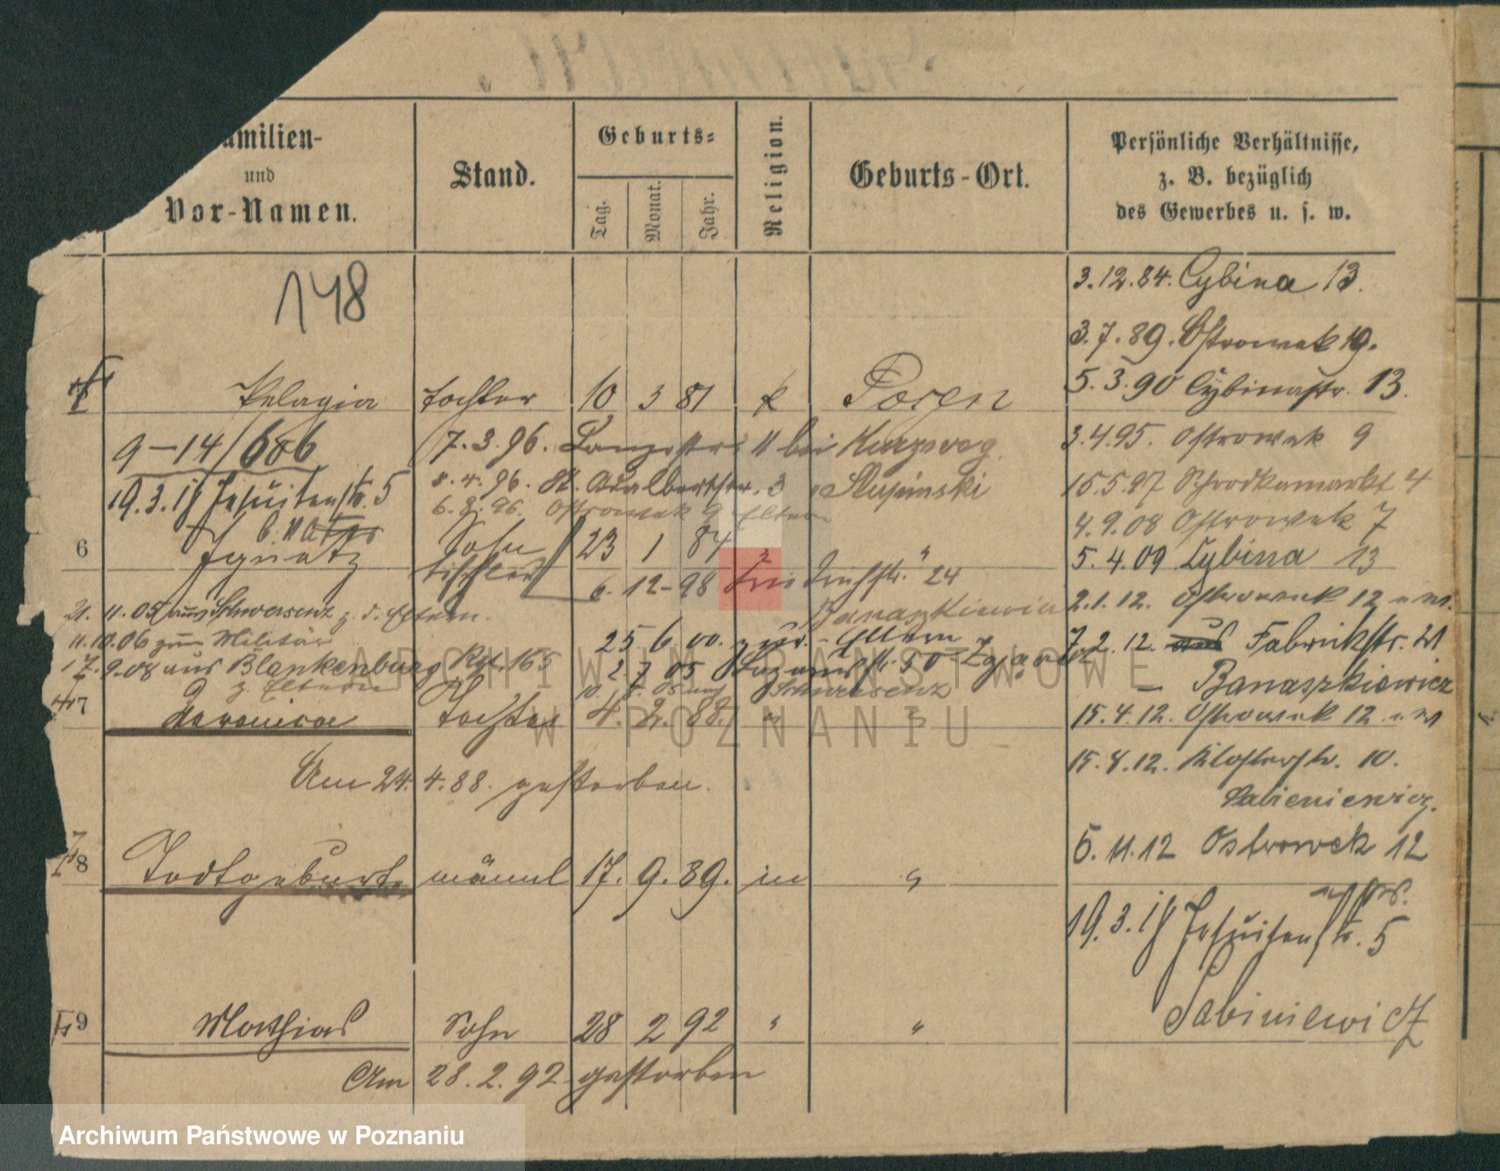 Familien-
und
Vor-Namen.
Stand.
Geburts-
Tag.
Monat.
Jahr.
Religion.
Geburts-Ort.
Persönliche Verhältnisse,
z. B. bezüglich
des Gewerbes u. s. w.
148
3.12.84. Cybina 13.
3.7.89. Ostrowek 19.
Pelagia Tochter 10 3 81 k Posen
5.3.90 Cybinastr. 13.
9-14/686
7.3.96. 11 bei
3.4.95. Ostrowek 9
19.3.18 Jesuitenstr. 5
8.4.96. St. Adalbertstr. 3 Slupinski
15.5.97 Schrodkamarkt 4
6.8.96. Ostrowek 9 Eltern
4.9.08 Ostrowek 7
6 Ignatz Sohn 23 1 84 "
Tischler
5.4.09 Cybina 13
6.12-98 24
Banaszkiewicz
2.1.12. Ostrowek 12
21.11.05 aus Schwersenz z. d. Eltern.
11.10.06 zum Militär
25 6 00. zur. Eltern
7.2.12. Fabrikstr. 21
17.9.08 aus Blankenburg Rgt. 165
2 7 05
z. Eltern
Schwersenz
Banaszkiewicz
7 Veronica Tochter 4. 2. 88. " "
15.4.12. Ostrowek 12
Am 24.4.88. gestorben.
15.8.12. Klosterstr. 10.
Sabieniewicz.
8 Todtgeburt männl 17. 9. 89. "
5.11.12 Ostrowek 12
19.3.18 Jesuitenstr. 5
Sabiniewicz
9 Mathias Sohn 28 2 92 " "
Am 28.2.92 gestorben
ARCHIWUM PAŃSTWOWE
W POZNANIU
Archiwum Państwowe w Poznaniu